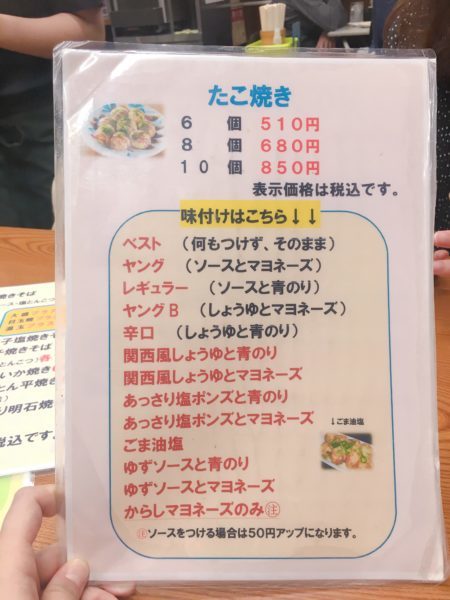 たこ焼き
6 個 510円
8 個 680円
10 個 850円
表示価格は税込です。
味付けはこちら↓↓
ベスト （何もつけず、そのまま）
ヤング （ソースとマヨネーズ）
レギュラー （ソースと青のり）
ヤングB （しょうゆとマヨネーズ）
辛口 （しょうゆと青のり）
関西風しょうゆと青のり
関西風しょうゆとマヨネーズ
あっさり塩ポンズと青のり
あっさり塩ポンズとマヨネーズ
↓ごま油塩
ごま油塩
ゆずソースと青のり
ゆずソースとマヨネーズ
からしマヨネーズのみ㊟
㊟ソースをつける場合は50円アップになります。
焼きそば
ース・塩とんこつ
大盛
目玉焼
温玉
子塩焼きそ
焼きそば
とんこつ）各
いか焼き
とん平焼き
り明石焼
税込です。